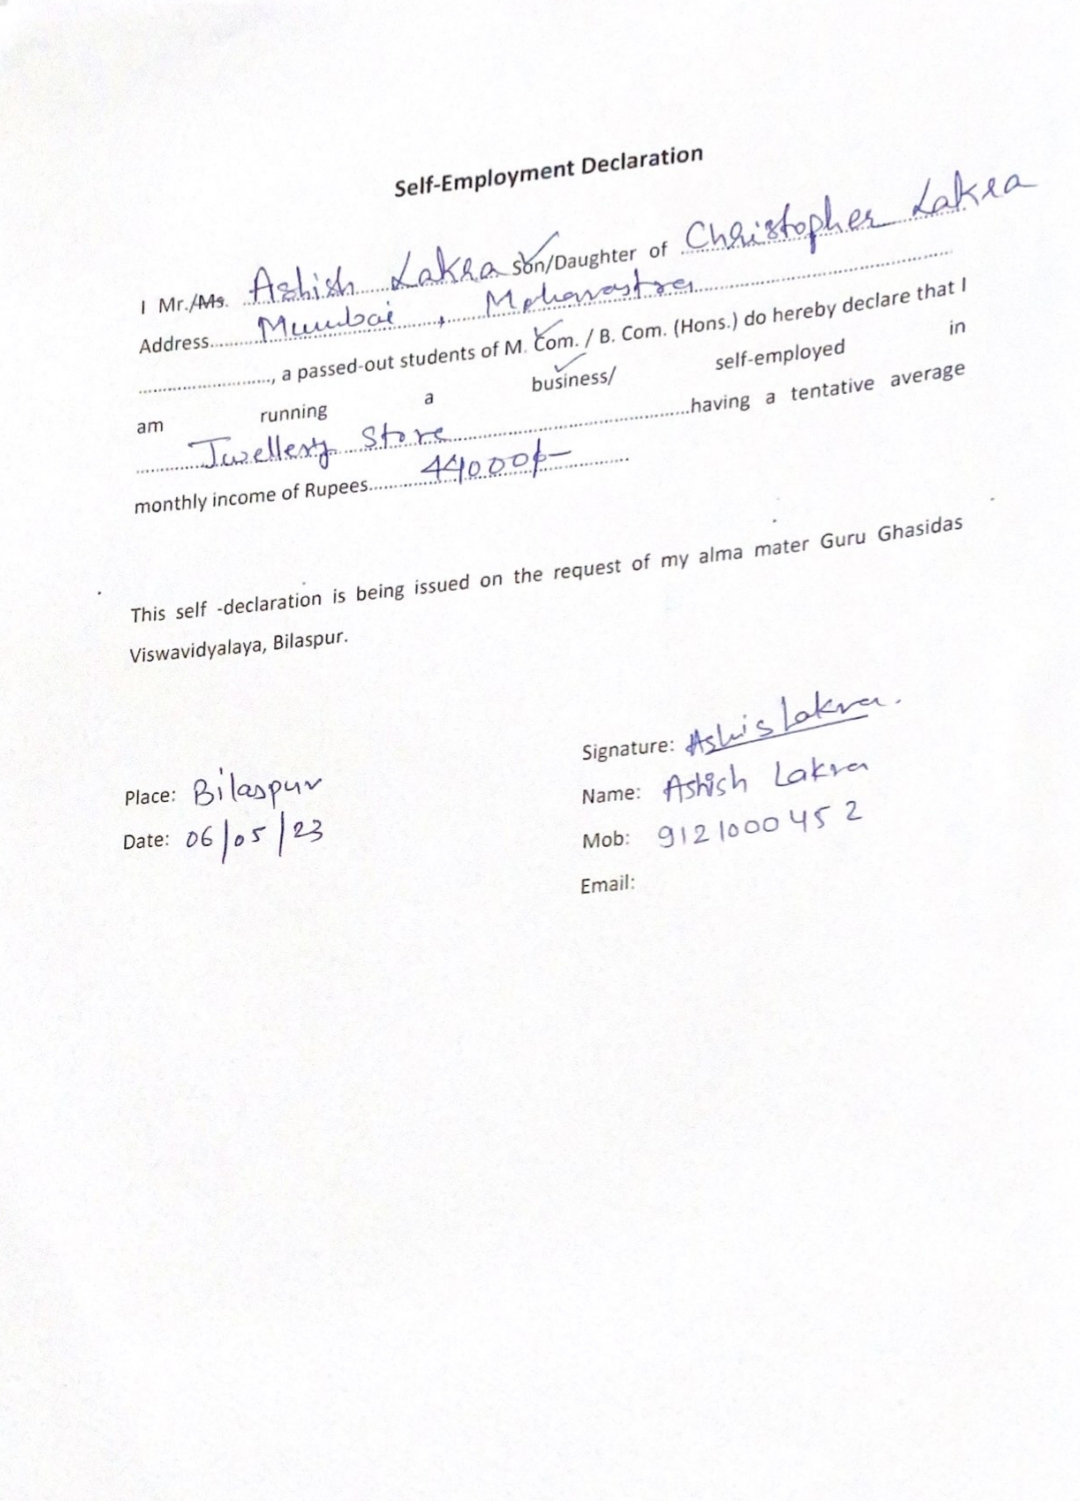 Self-Employment Declaration
I Mr./Ms. Ashish Lakra son/Daughter of Christopher Lakra
Address.......... Mumbai , Maharastra ..........
.........................., a passed-out students of M. Com. / B. Com. (Hons.) do hereby declare that I
am running a business/ self-employed in
.......... Jwellery Store ..........having a tentative average
monthly income of Rupees.......... 44000/- ..........
This self -declaration is being issued on the request of my alma mater Guru Ghasidas
Viswavidyalaya, Bilaspur.
Signature: Ashis Lakra.
Place: Bilaspur
Name: Ashish Lakra
Date: 06/05/23
Mob: 9121000452
Email: